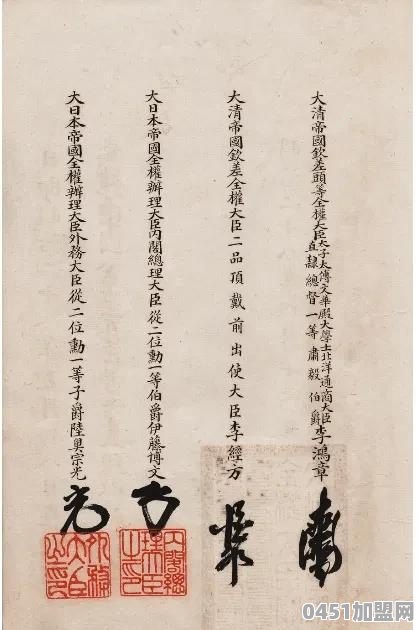 大清帝國欽差頭等全權大臣太子太傅文華殿大學士北洋通商大臣直隸總督一等肅毅伯爵李鴻章
大清帝國欽差全權大臣二品頂戴前出使大臣李經方
大日本帝國全權辦理大臣內閣總理大臣從二位勳一等伯爵伊藤博文
大日本帝國全權辦理大臣外務大臣從二位勳一等子爵陸奥宗光
內閣總理大臣之印
外務大臣之印
0451加盟网